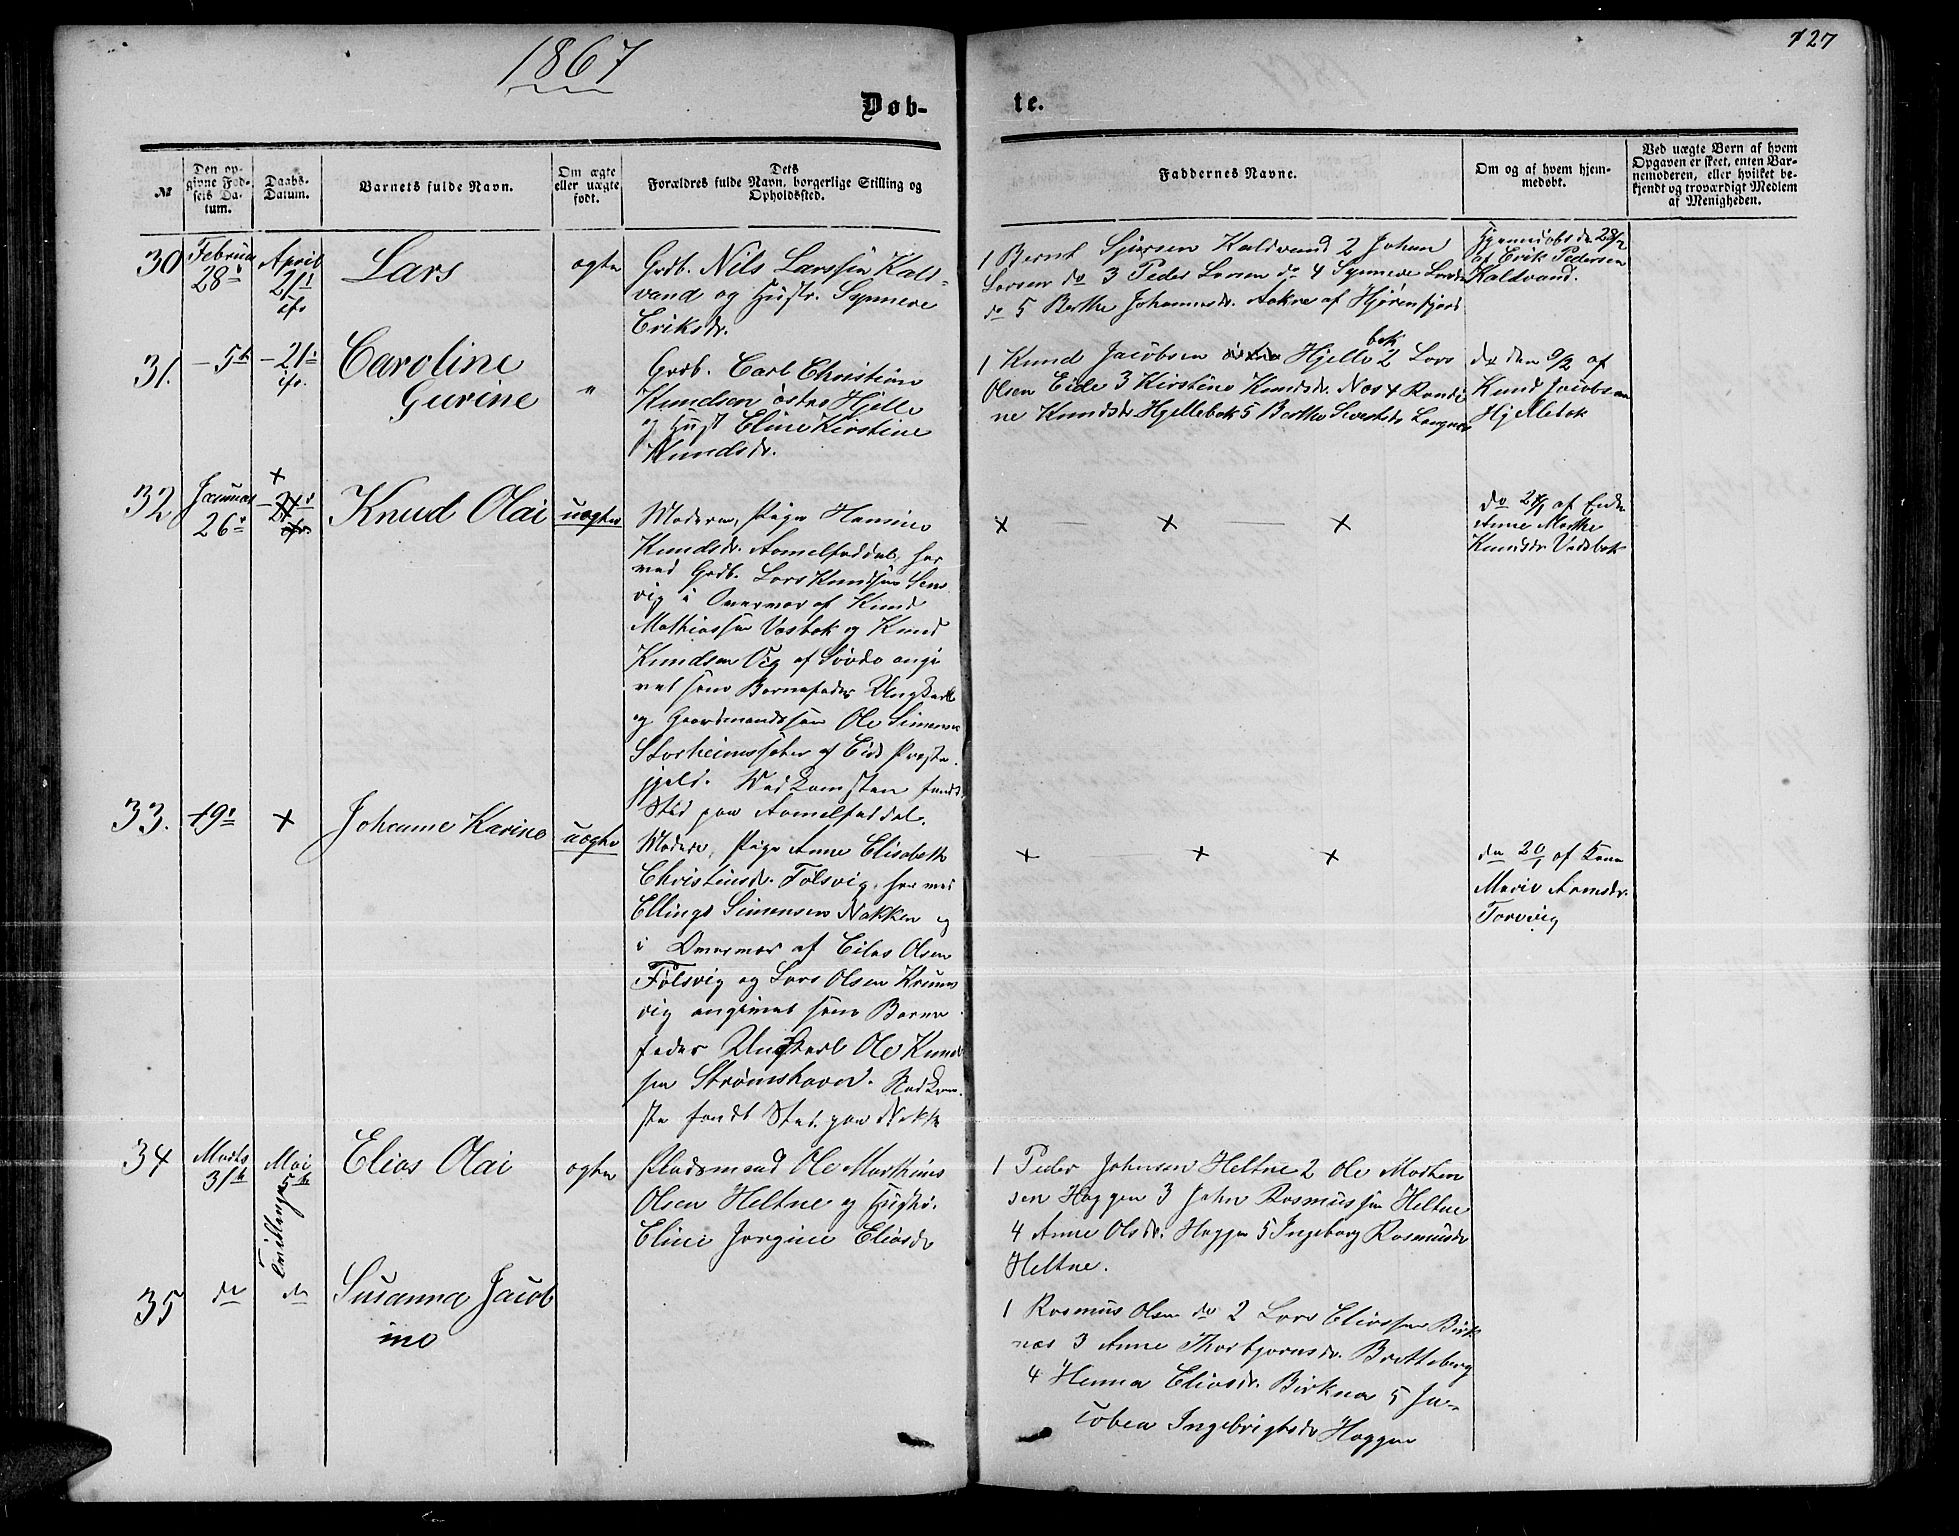 1867
127
Døb-
te.
№
Den op-
givne Fød-
sels Da-
tum.
Daabs-
Datum.
Barnets fulde Navn.
Om ægte
eller uægte
født.
Dets
Forældres fulde Navn, borgerlige Stilling og
Opholdssted.
Faddernes Navne.
Om og af hvem hjem-
medøbt.
Ved uægte Børn af hvem
Opgaven er skeet, enten Bar-
nemoderen, eller hvilket be-
kjendt og troværdigt Medlem
af Menigheden.
30
Februar
28
April
21
Lars
ægte
Grdb. Nils Larssen Kald-
vand og Hustr. Synneve
Eriksdr.
1 Bernt Kaldvand 2 Johan
Larsen do 3 Peder Larsen do 4 Synneve
do 5 Berthe Johannesdr. Aakne af Hjørenfjord
Hjemmedøbt d. 28/2
af Erik Pedersen
Kaldvand.
31.
- 5te
- 21
Caroline
Gurine
"
Grdb. Carl Christian
Knudsen østre Hjelle
og Hust Eline Kirstine
Knudsdr.
1 Knud Jacobsen Hjelle bak 2 Lars
Olsen Eide 3 Kirstine Knudsdr. Næs 4 Randi
ne Knudsdr Hjellebak 5 Berthe Sivertsdr Langnæs
do den 9/2 af
Knud Jacobsen
Hjellebak
32
Januar
26
+
- 21
Knud Olai
uægte
Moderen, Pige Hanine
Knudsdr. Aamelfoddal, har
ved Grdb. Lars Knudsen Sens
vig i Overvær af Knud
Mathiassen Vasbak og Knud
Knudsen Vig af Sövde angi
vet som Barnefader Ungkarl
og Gaardmandssøn Ole Simensen
Storheimsæter af Eids Præste
gjeld. Medkomsten fandt
Sted paa Aamelfoddal.
+ + +
do af Enke
Anne Marthe
Knudsdr Vasbak
33.
19
+
Johanne Karine
uægte
Moder, Pige Anne Elisabeth
Christensdr. Følsvig, har med
Elling Simensen Nakken og
i Overvær af Elias Olsen
Følsvig og Lars Olsen
vig angivet som Barne
fader Ungkarl Ole Knud
sen Strømshavn.
fandt Sted paa Nakke
+ + +
do 20/1 af Kone
Marie
Torvig
34
Marts
31te
Mai
Elias Olai
ægte
Pladsmand Ole Marthinus
Olsen Heltne og Hustr.
Eline Jorgine Eliasdr
1 Peder Johnsen Heltne 2 Ole Morten
sen Haggen 3 John Rasmussen Heltne
4 Anne Olsdr. Haggen 5 Ingeborg Rasmusdr
Heltne.
Tvillinger
35
do
do
Susanna Jacob
ine
1 Rasmus Olsen do 2 Lars Eliassen Birk
næs 3 Anne Thorbjørnsdr. Bratteberg
4 Henna Eliasdr. Birknæs 5 Ja-
cobea Ingebrigtsdr Haggen